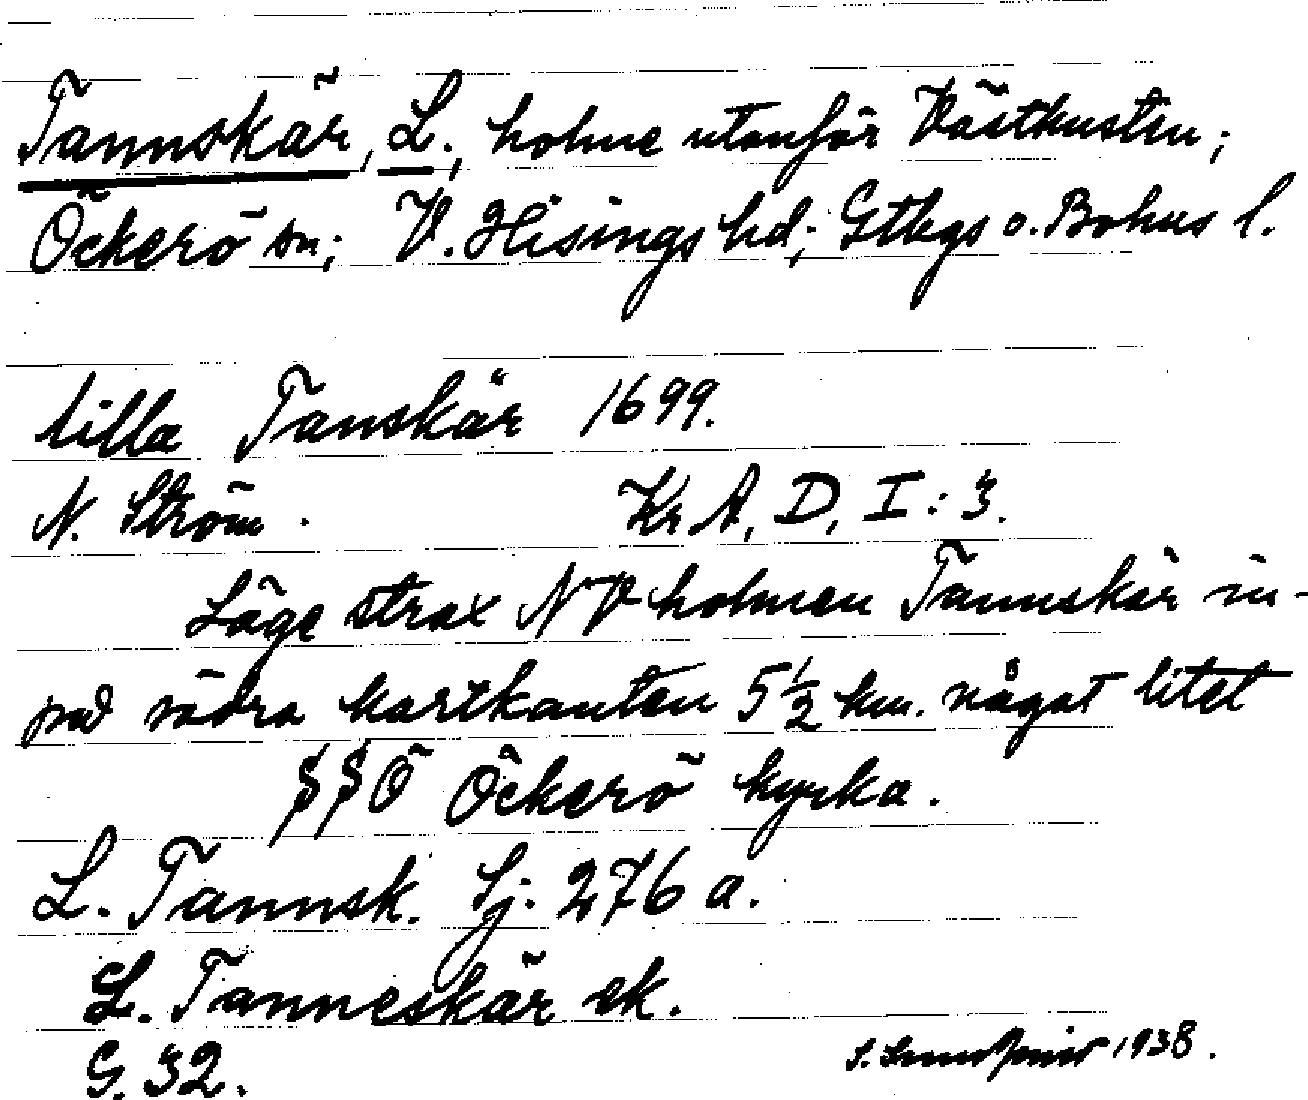 Tannskär, L., holme utanför Västkusten;
Öckerö sn; V. Hisings hd; Gtbgs o. Bohus l.
Lilla Tanskär 1699.
N. Ström. Kr A, D, I: 3.
Läge strax NV holmen Tannskär in-
på södra kartkanten 5 1/2 km. något litet
S S Ö Öckerö kyrka.
L. Tannsk. Sj. 276 a.
L. Tanneskär ek.
G. 32.
S. 1938.